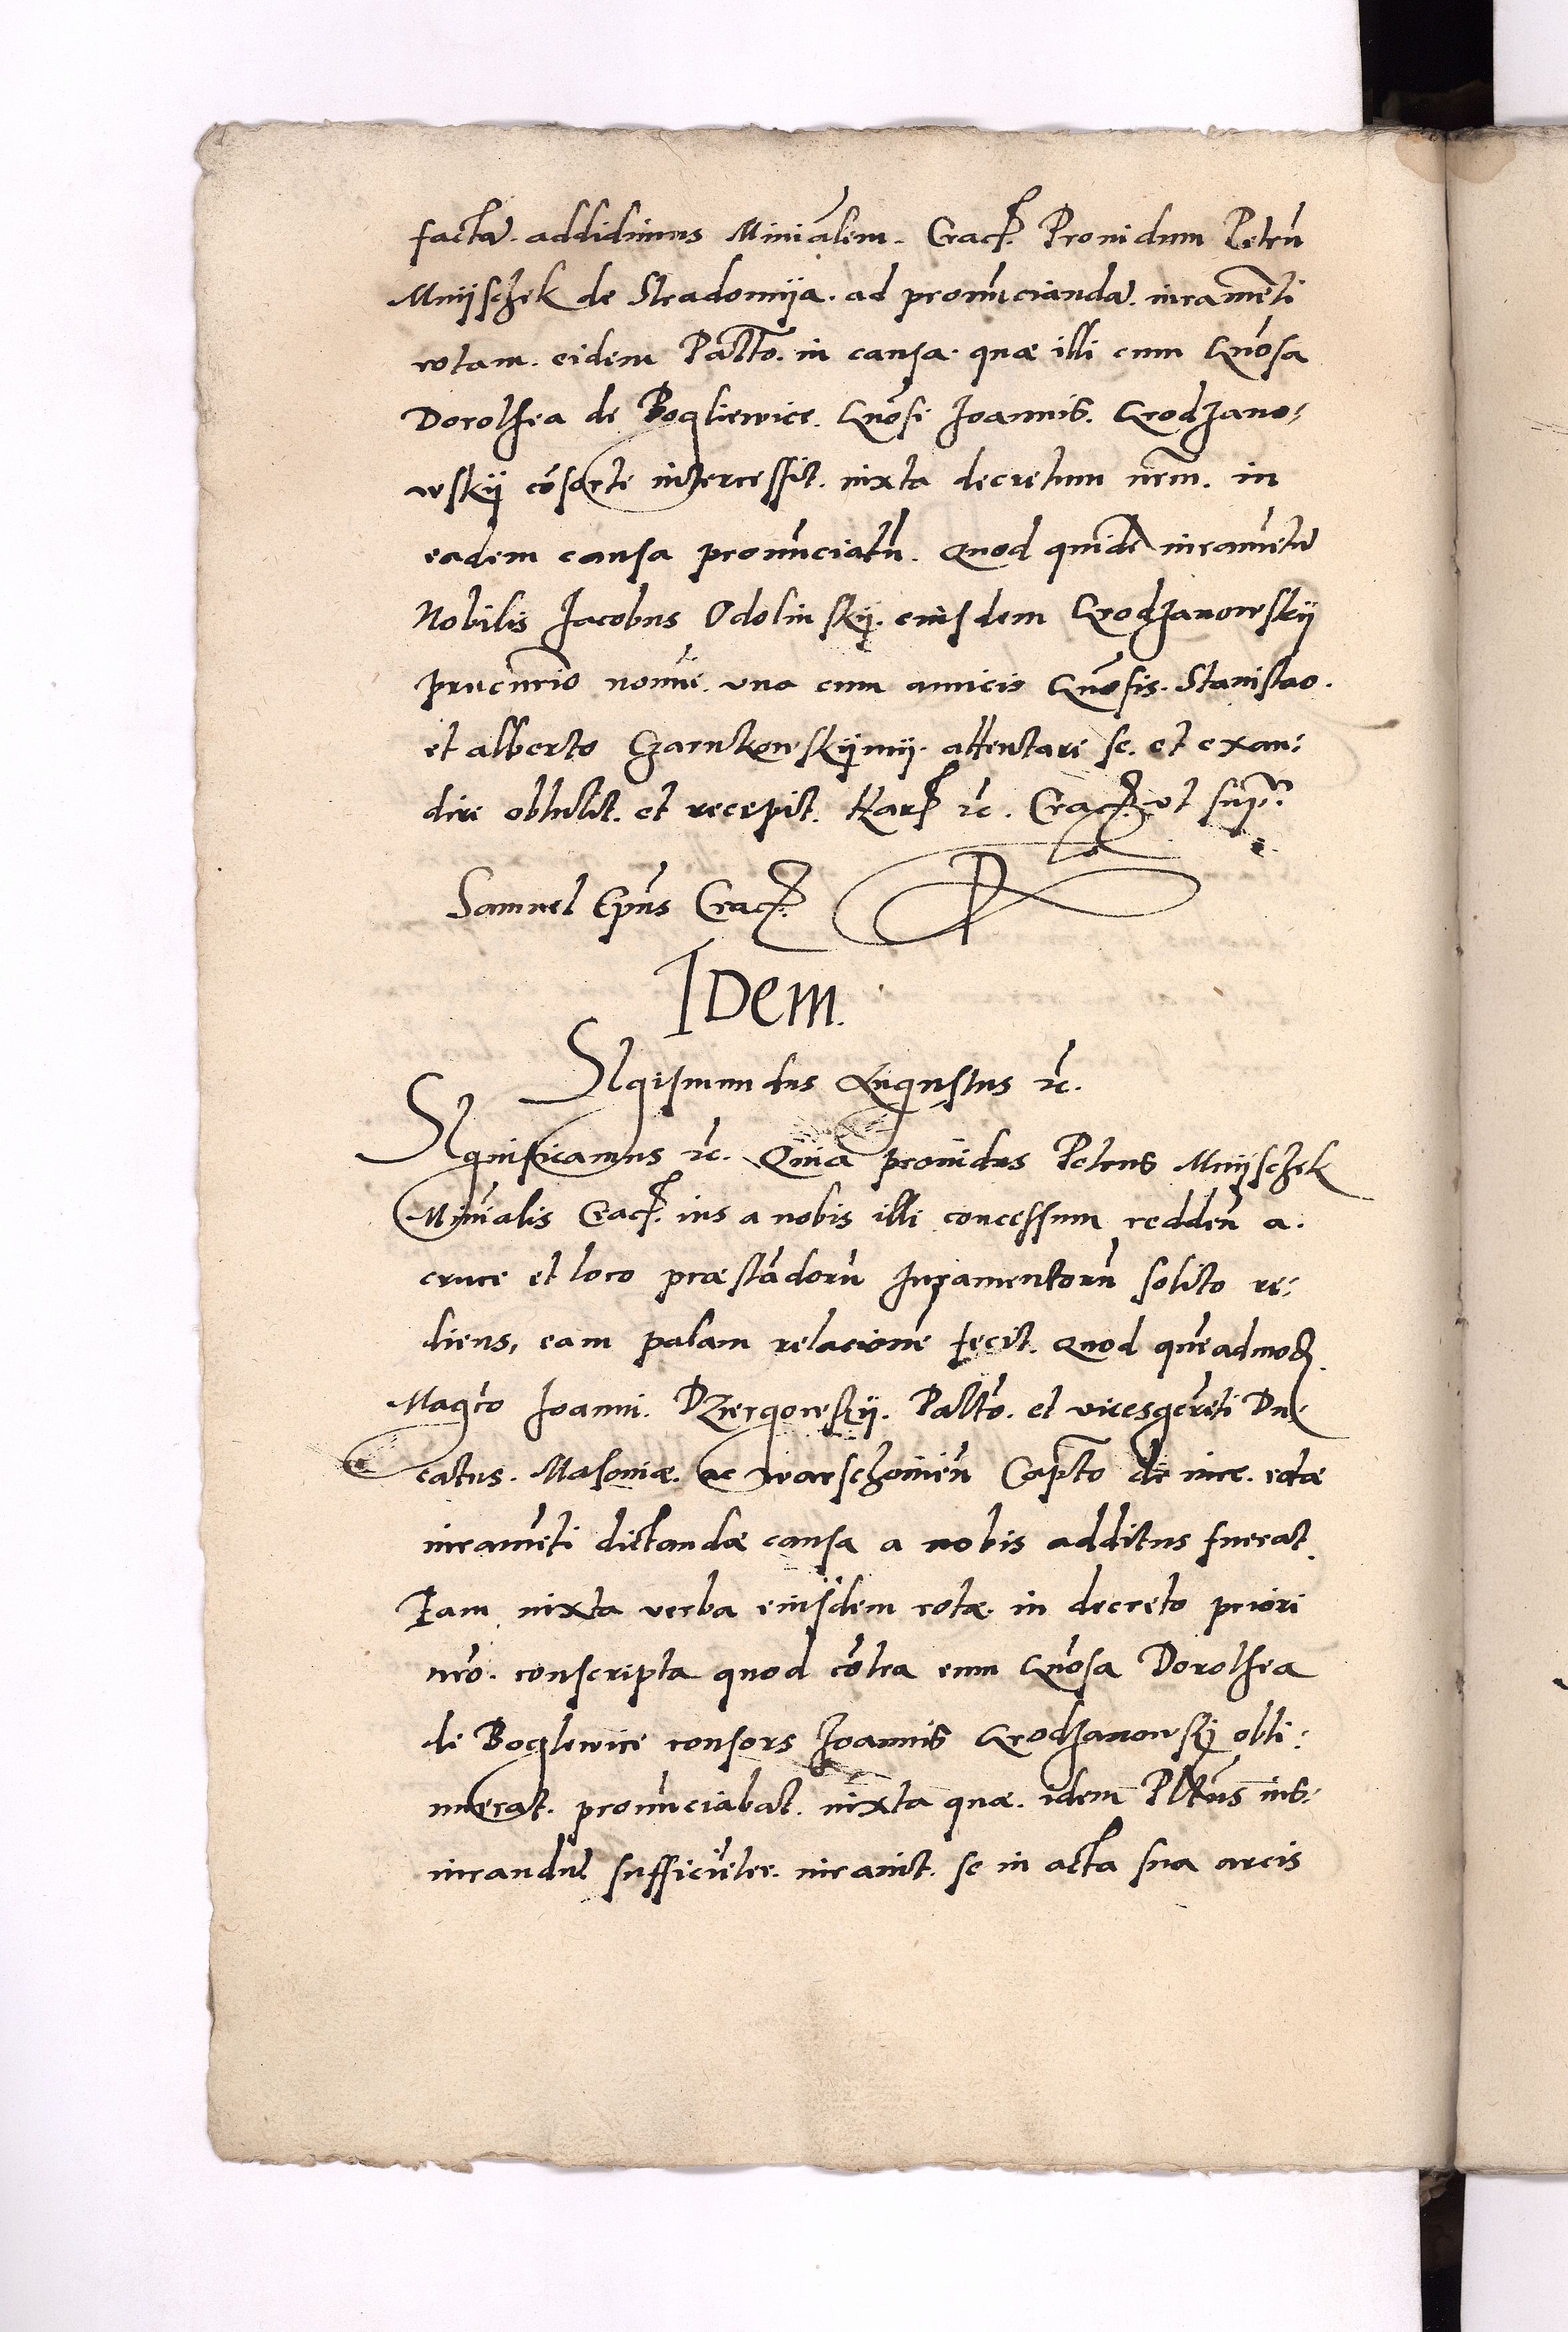 factā. addidimus Miniālem. Cracꝭ. Prouidum Petrū
Mnijschek de Stradomija. ad pronūcianda. iuramēti
rotam. eidem Palto. in causa. quæ illi cum Gn̄osa
Dorothea de Bogliewice. Gn̄osi Joannis. Grodzano-
wskij cōsorte intercessit. iuxta decretum nr̄m. in
eadem causa pronūciatū. Quod quidē iuramētū
Nobilis Jacobus Odolinskij. eiusdem Grodzanowskij
procur̄io nomīe. una cum amicis Gn̄osis. Stanislao.
et alberto Czarnkowskijmij. attentare se. et exau-
dire obtulit. et recepit. Harꝭ ꝛc. Cracꝭ. ut supᵃ.
Samuel Ep̄us Cracꝭ.
IDem.
SIgismundus Augustus ꝛc.
SIgnificamus ꝛc. Quia prouidus Petrus Mnijschek
Mīnialis Cracꝭ. ius a nobis illi concessum reddeñ a.
cruce et loco præstādorū Juramentorū solito re-
diens, eam palam relacionē fecit. Quod quēadmoꝭ
Magc̄o Joanni. Dzergowskij. Paltō. et vicesgerēti Du
catus. Masouiæ. ac warschouień Capto de iure. rotæ
iuramēti dictandæ causa a nobis additus fuerat.
Iam iuxta verba eiusdem rotæ. in decreto priori
nr̄o. conscripta quod cōtra eum Gn̄osa Dorothea
de Boglewice consors Joannis Grodzanowskij obti-
nuerat. pronūciabat. iuxta quæ. idem Pltūs ius-
iurandū sufficiēter. iurauit. se in acta sua arcis